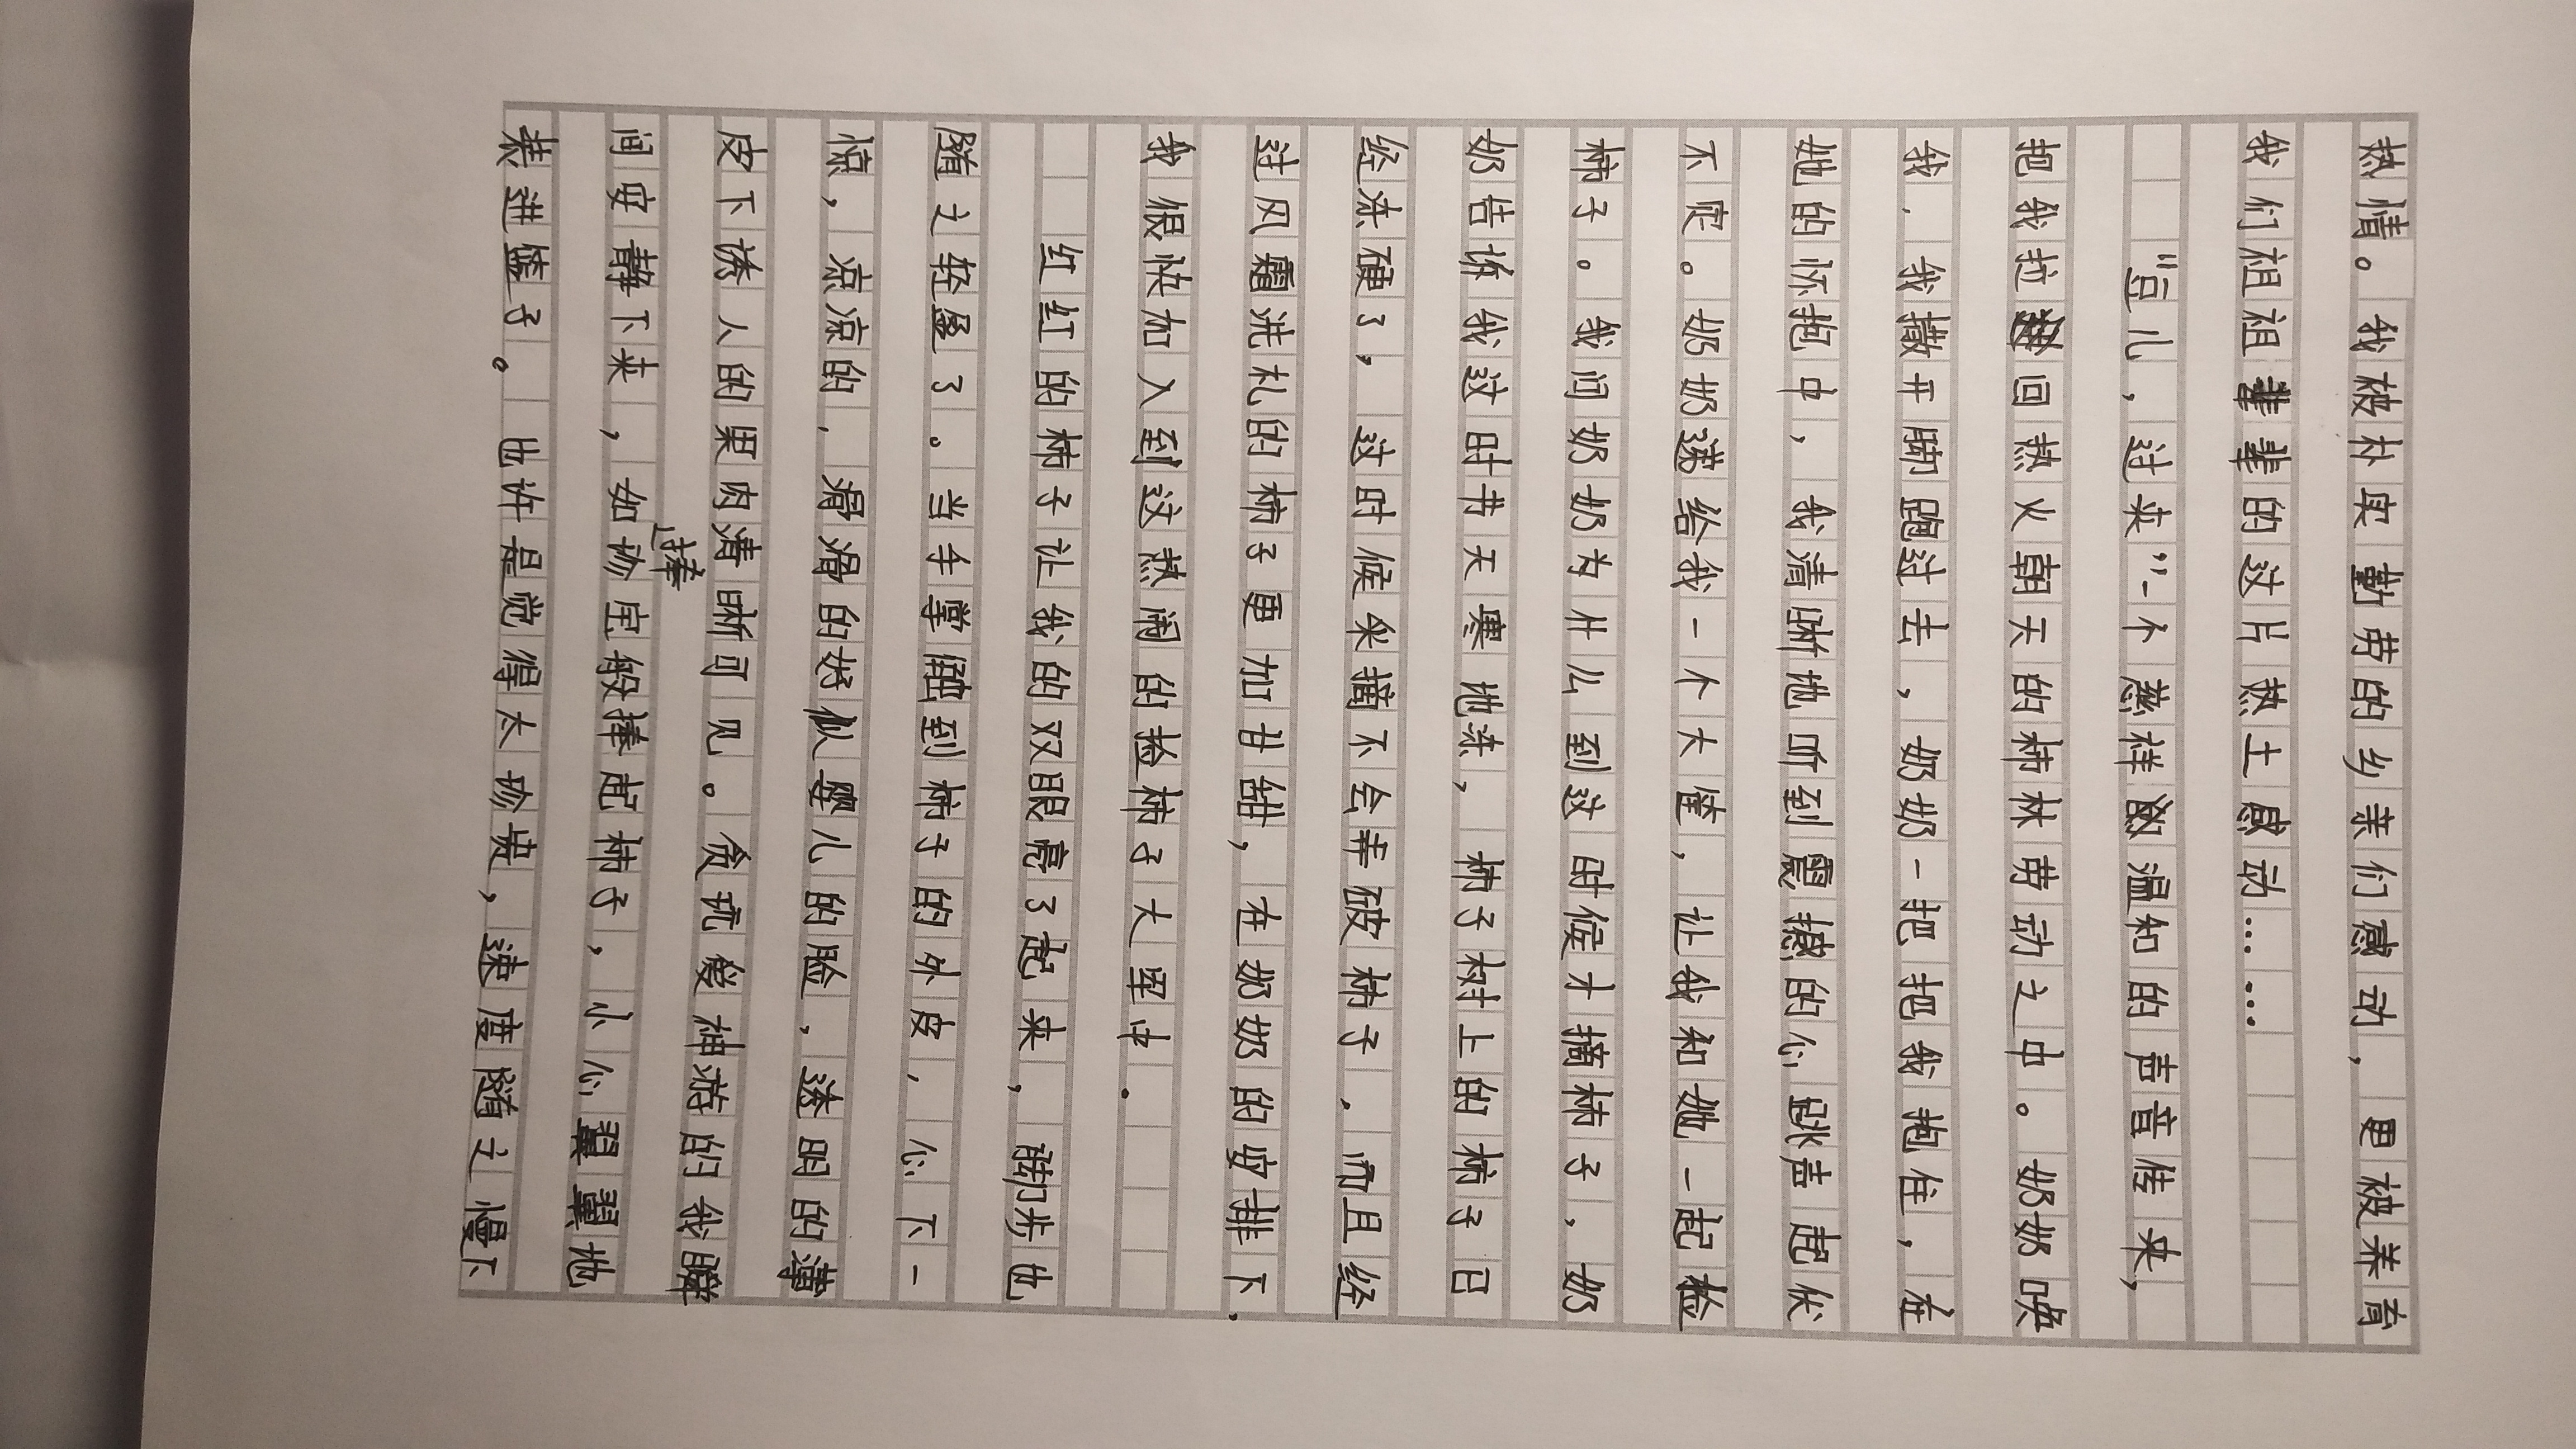 热情。我被朴实勤劳的乡亲们感动，更被养育
我们祖祖辈辈的这片热土感动……
“豆儿，过来”一个慈祥的温和的声音传来，
把我拉回热火朝天的柿林劳动之中。奶奶唤
我，我撒开脚跑过去，奶奶一把把我抱住，在
她的怀抱中，我清晰地听到震撼的心跳声起伏
不定。奶奶递给我一个大筐，让我和她一起捡
柿子。我问奶奶为什么到这时候才摘柿子，奶
奶告诉我这时节天寒地冻，柿子树上的柿子已
经冻硬了，这时候采摘不会弄破柿子，而且经
过风霜洗礼的柿子更加甘甜，在奶奶的安排下，
我很快加入到这热闹的捡柿子大军中．
红红的柿子让我的双眼亮了起来，脚步也
随之轻盈了。当手掌触到柿子的外皮，心下一
惊，凉凉的，滑滑的好似婴儿的脸，透明的薄
皮下诱人的果肉清晰可见。贪玩爱神游的我瞬
间安静下来，如捧珍宝般捧起柿子，小心翼翼地
装进篮子。也许是觉得太珍贵，速度随之慢下